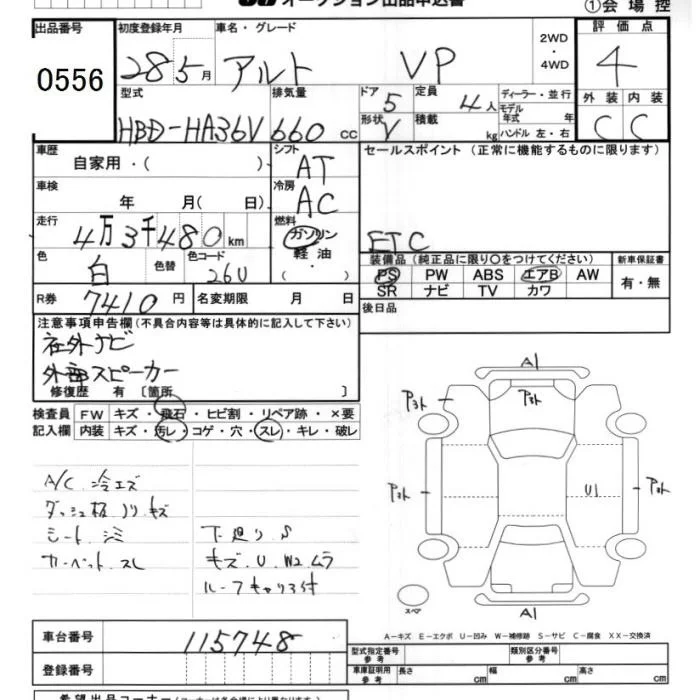 オークション出品申込書
①会場控
出品番号 0556
初度登録年月 28 5月
車名・グレード アルト VP
2WD・4WD
評価点 4
外装 C 内装 C
型式 HBD-HA36V
排気量 660 cc
ドア 5 形状 V
定員 4人 積載 kg
ディーラー・並行
モデル年式 年
ハンドル 左・右
車歴 自家用・( )
シフト AT
セールスポイント (正常に機能するものに限ります)
ETC
車検 年 月( 日)
冷房 AC
走行 4万3千480km
燃料 ガソリン 軽油・( )
色 白 色替 色コード 26U
装備品(純正品に限り○をつけてください)
PS PW ABS エアB AW
SR ナビ TV カワ
新車保証書 有・無
R券 7410円
名変期限 月 日
後日品
注意事項申告欄(不具合内容等は具体的に記入して下さい)
社外ナビ
外部スピーカー
修復歴 有〔箇所 〕
検査員記入欄
FW キズ・飛石・ヒビ割・リペア跡・×要
内装 キズ・汚レ・コゲ・穴・スレ・キレ・破レ
A/C 冷エズ
ダッシュ板ノリ キズ
シート シミ
カーペット スレ
下廻り S
キズ.U.W2ムラ
ルーフキャリア付
A1
アスト アスト
アスト U1 アスト
A1
スペア
A−キズ E−エクボ U−凹み W−補修跡 S−サビ C−腐食 XX−交換済
車台番号 115748
登録番号
型式指定番号 参考
類別区分番号 参考
車庫証明用 参考 長さ cm 幅 cm 高さ cm
希望出品コーナー